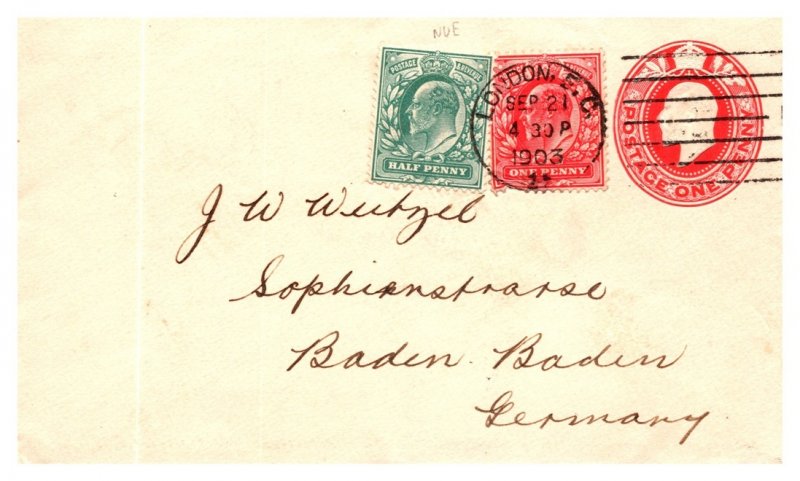 NUE
POSTAGE & REVENUE
HALF PENNY
ONE PENNY
LONDON, E.C.
SEP 21
4 30 P
1903
POSTAGE ONE PENNY
J W Weitzel
Sophienstrasse
Baden Baden
Germany